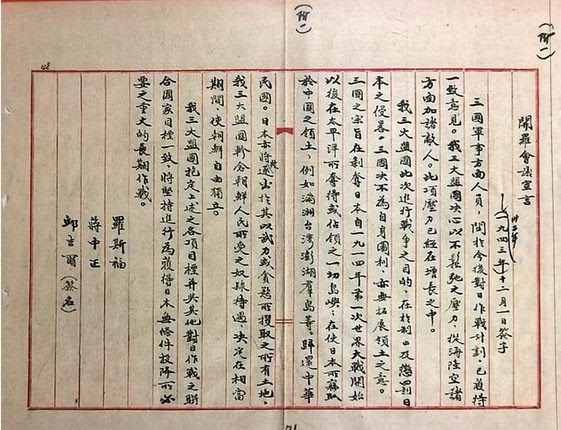 (附一)
(附一)
開羅會議宣言
(一九四三年十二月一日簽字
三國軍事方面人員,関於今後對日作戰计划,已獲得
一致意見。我三大盟國决心以不鬆弛之壓力,從海陸空諸
方面加諸敵人。此項壓力已經在增長之中。
我三大盟國此次進行戰争之目的,在於制止及懲罰日
本之侵畧。三國决不為自身圖利,亦無拓展領土之意。
三國之宗旨在剥奪日本自一九一四年第一次世界大戰開始
以後在太平洋所奪得或佔領之一切島嶼;在使日本所竊取
於中國之領土,例如滿洲台湾澎湖羣島等,歸還中華
民國。日本亦將被逐出於其以武力或貪慾所攫取之所有土地,
我三大盟國軫念朝鮮人民所受之奴隸待遇,决定在相當
期間,使朝鮮自由獨立。
我三大盟國抱定上述之各項目標并與其他對日作戰之聯
合國家目標一致,將堅持進行為獲得日本無條件投降所必
要之重大的長期作戰。
羅斯福
蔣中正
邱吉爾(簽名)